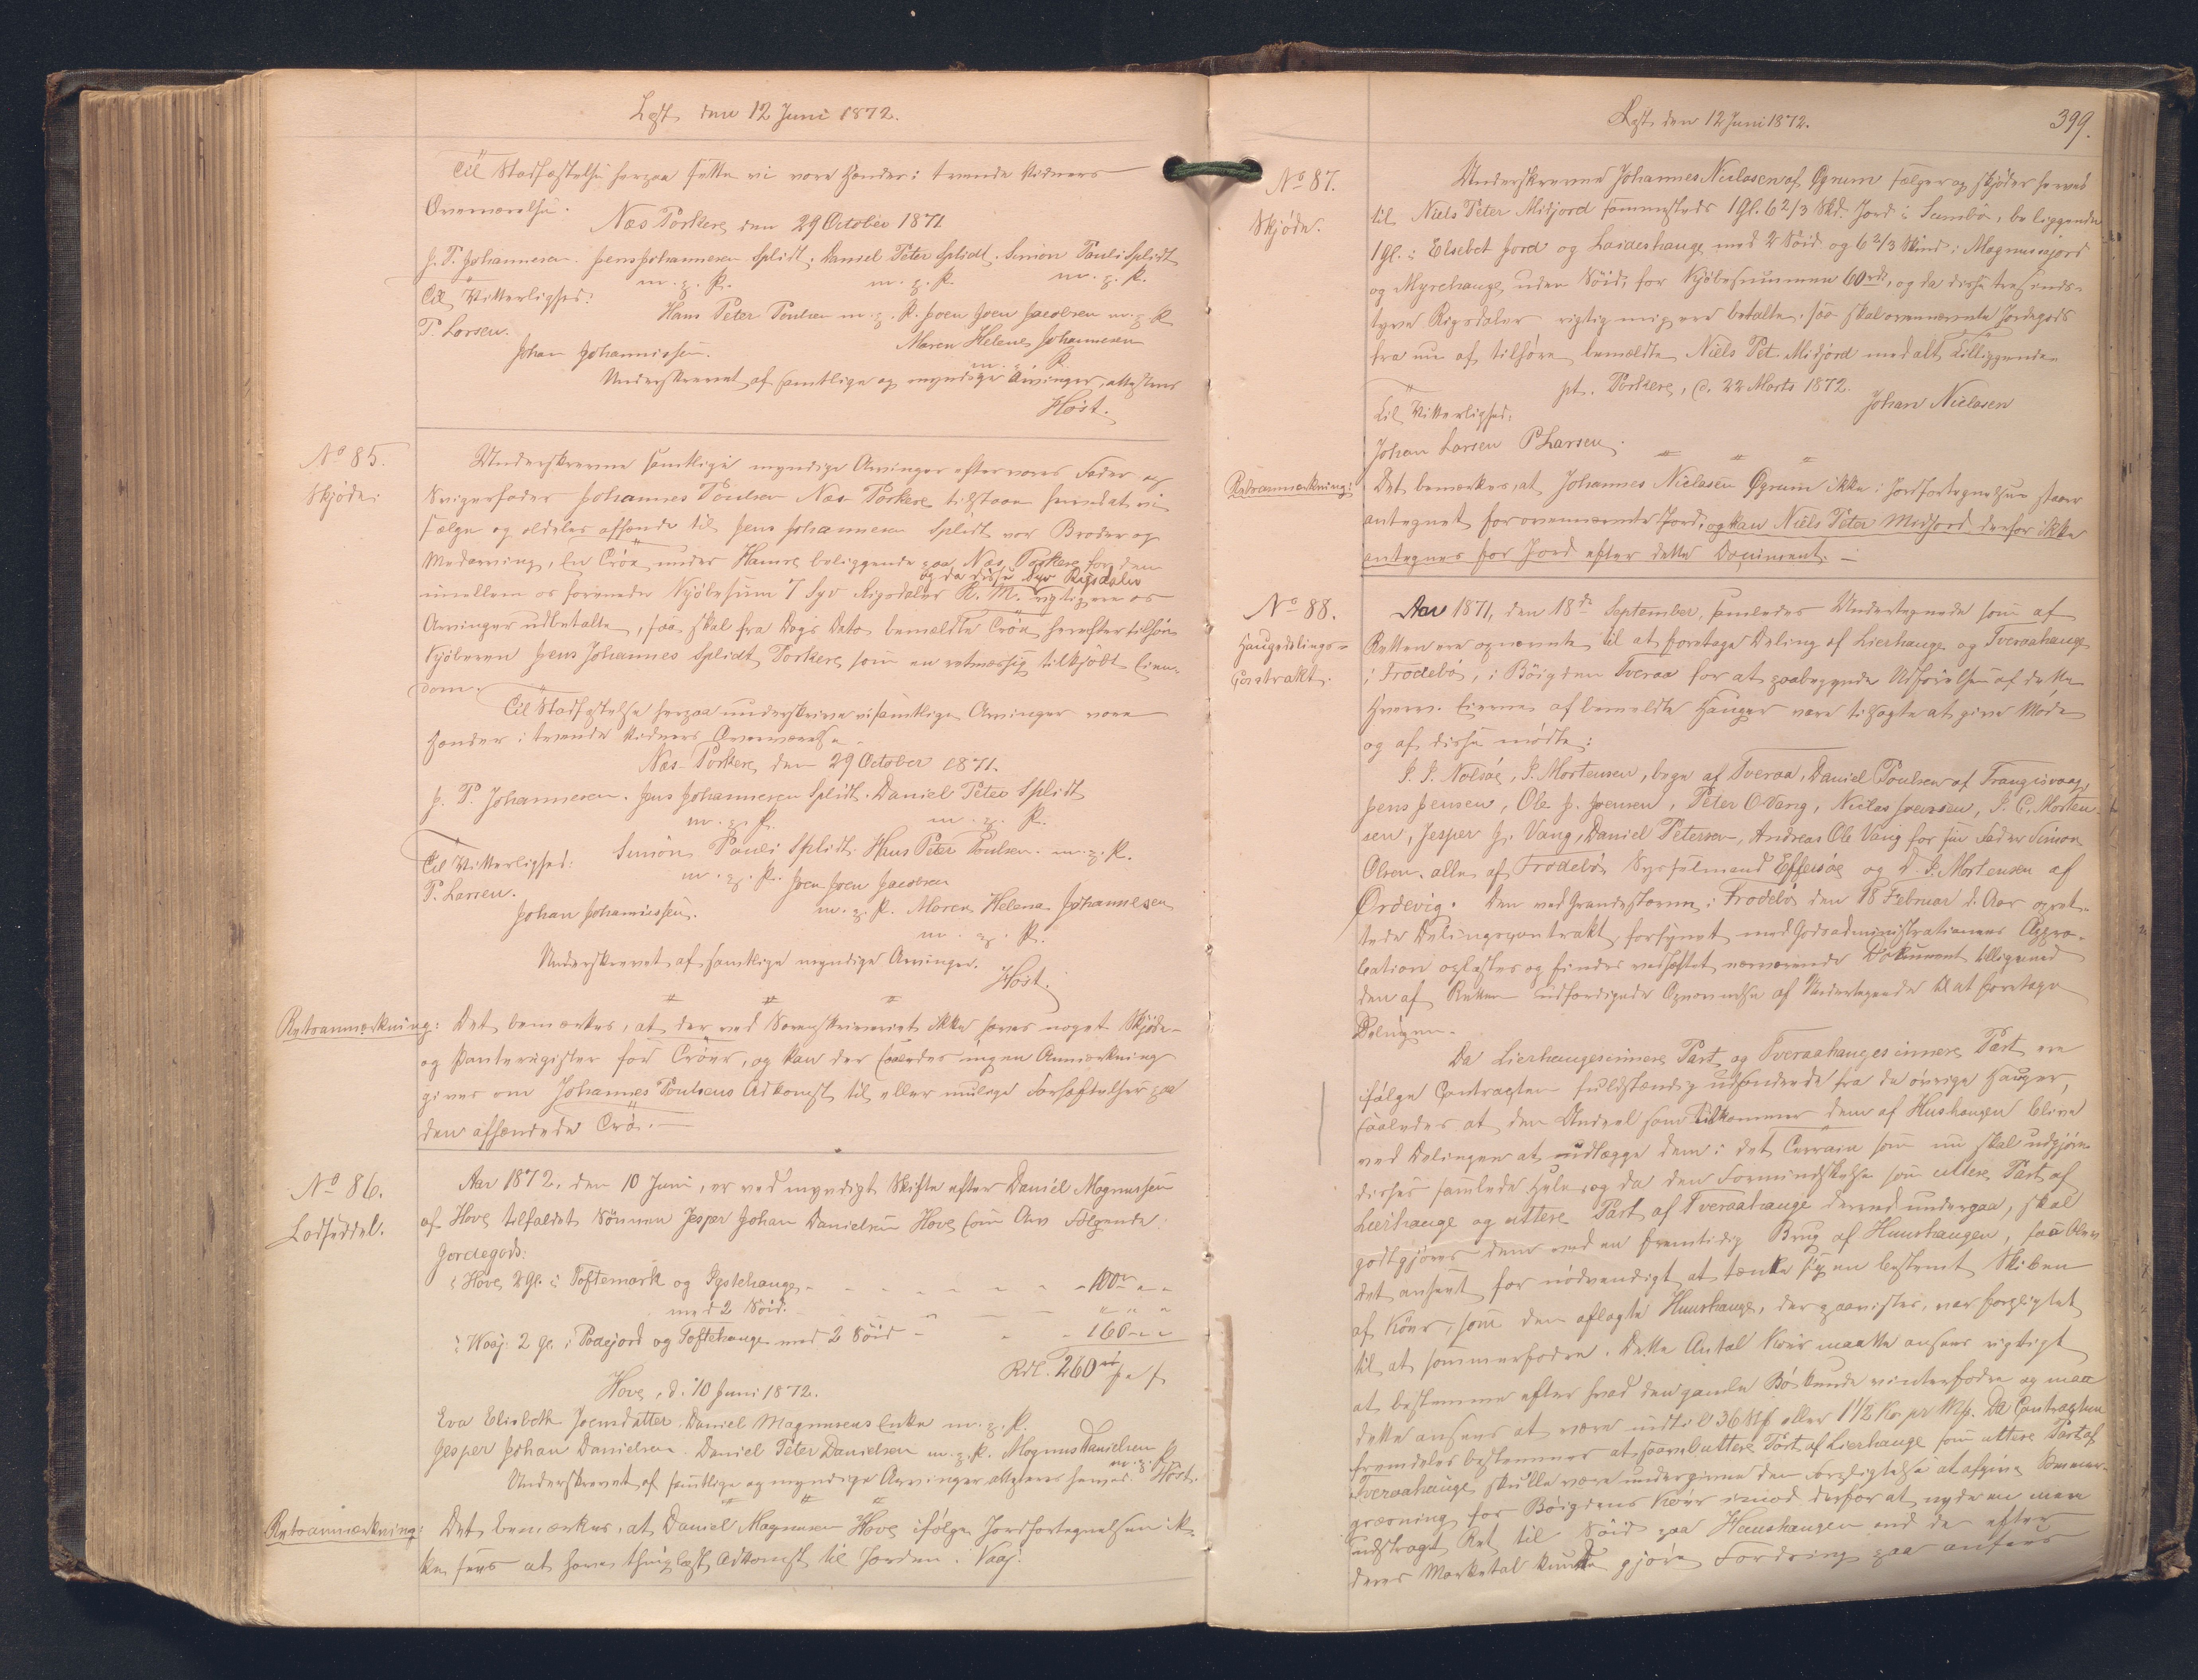 Læst den 12 Juni 1872.
Til Stadfæstelse herpaa sætte vi vore Hænder i tvende Vidners
Overværelse.
Næs Porkere den 29 October 1871
J. P. Johannesen. Jens Johannesen Splidt. Daniel Peter Splidt. Simon Pauli Splidt
m. p. P. m. p. P. m. p. P.
Til Vitterlighed: Hans Peter Poulsen m. p. P. Joen Joen Jacobsen m. p. P.
P. Larsen. Maren Helene Johannesen
Johan Johannissen. m. p. P.
Underskrevet af samtlige og myndige Arvinger, attesteres
Høst.
No 85.
Skjøde.
Underskrevne samtlige myndige Arvinger efter vores Fader og
Svigerfader Johannes Poulsen Næs Porkere tilstaae herved at vi
sælge og aldeles afhænde til Jens Johannesen Splidt vor Broder og
Medarving, En Tröe under Hamre beliggende paa Næs Porkere for den
og da disse Syv Rigsdaler
imellem os forenede Kjöbesum 7 Syv Rigsdaler R. M. rigtig ere os
Arvinger udbetalte, saa skal fra Dags Dato bemældte Tröe herefter tilhöre
Kjöberen Jens Johannes Splidt Porkere som en retmæssig tilkjöbt Eien-
dom.
Til Stadfæstelse herpaa underskrive vi samtlige Arvinger vore
Hænder i tvende Vidners Overværelse.
Næs Porkere den 29 October 1871.
J. P. Johannesen. Jens Johannesen Splidt. Daniel Peter Splidt
m. p. P. m. p. P.
Til Vitterlighed: Simon Pauli Splidt. Hans Peter Poulsen. m. p. P.
P. Larsen. m. p. P. Joen Joen Jacobsen
Johan Johannissen. m. p. P. Maren Helena Johannesen
m. p. P.
Underskrevet af samtlige myndige Arvinger.
Høst.
Retsanmærkning: Det bemærkes, at der ved Sorenskriveriet ikke haves noget Skjöde-
og Panteregister for Tröer, og kan der saaledes ingen Anmærkning
gives om Johannes Poulsens Adkomst til eller mulige Forhæftelser paa
den afhændede Trö.
No 86.
Lodseddel.
Aar 1872, den 10 Juni, er ved myndigt Skifte efter Daniel Magnussen
af Hove tilfaldet Sönnen Jesper Johan Danielsen Hove som Arv Fölgende:
Jordegods:
i Hove 2 Gl. i Toftemark og Systehauge - 100 rd - -
med 2 Söid. - - -
i Waag: 2 Gl. i Podejord og Toftehauge med 2 Söid - 160 - -
Rdl. 260 rd
Hove, d. 10 Juni 1872.
Eva Elisbeth Joensdatter. Daniel Magnussens Enke m. p. P.
Jesper Johan Danielsen. Daniel Peter Danielsen m. p. P. Magnus Danielsen
m. p. P.
Underskrevet af samtlige og myndige Arvinger attesteres herved. Høst.
Retsanmærkning: Det bemærkes, at Daniel Magnussen Hove ifölge Jordfortegnelsen ik-
ke sees at have thinglæst Adkomst til Jorden i Vaag.
Læst den 12 Juni 1872.
399.
No 87.
Skjöde.
Underskrevne Johannes Niclasen af Øgrum sælger og skjöder herved
til Niels Peter Midjord sammesteds 1 Gl. 6 2/3 Skd. Jord i Sumbö, beliggende
1 Gl. i Elsebet Jord og Laideshauge med 2 Söid og 6 2/3 Skind i Magnusajord
og Myrehauge uden Söid, for Kjöbesummen 60 rd, og da disse tresinds-
tyve Rigsdaler rigtig mig ere betalte, saa skal ovennævnte Jordegods
fra nu af tilhöre bemældte Niels Pet. Midjord med alt Tilliggende
pt. Porkere, d. 22 Marts 1872.
Til Vitterlighed: Johan Niclasen
Johan Larsen P Larsen.
Retsanmærkning: Det bemærkes, at Johannes Niclasen Øgrum ikke i Jordfortegnelsen staaer
antegnet for ovennævnte Jord, og kan Niels Peter Midjord derfor ikke
antegnes for Jord efter dette Document.
No 88.
Haugedelings-
Contrakt.
Aar 1871, den 18de September, samledes Undertegnede som af
Retten ere opnævnte til at foretage Deling af Lierhauge og Tveraahauge
i Frodebö, i Böigden Tveraa for at paabegynde Udförelsen af dette
Hverv. Eierne af bemeldte Hauger vare tilsagte at give Möde
og af disse mödte:
P. P. Nolsöe, P. Mortensen, begge af Tveraa, Daniel Poulsen af Trangisvaag,
Jens Jensen, Ole J. Joensen, Peter O Vang, Niclas Joensen, P. C. Morten-
sen, Jesper J. Vang, Daniel Petersen, Andreas Ole Vang for sin Fader Simon
Olsen, alle af Frodebö, Sysselmand Effersöe og D. P. Mortensen af
Ordevig. Den ved Grandestevne i Frodebö den 18 Februar d. Aar opret-
tede Delingscontrakt, forsynet med Godsadministrationens Appro-
bation oplæstes og findes vedhæftet nærværende Dokument tilligemed
den af Retten udfærdigede Opnævnelse af Undertegnede til at foretage
Delingen.
Da Lierhaugesinnere Part og Tveraahauges innere Part ere
ifölge Contracten fuldstændig udsondrede fra de övrige Hauger,
saaledes at den Andeel som tilkommer dem af Hushaugen blive
ved Delingen at udlægge dem i det Terrain som nu skal udgjöre
disses samlede Hele, og da den Formindskelse som uttere Part af
Lierhauge og uttere Part af Tveraahauge derved undergaae, skal
godtgjöres dem ved en fremtidig Brug af Huushaugen, saa blev
det anseet for nödvendigt at tænke sig en bestemt Skiben
af Köer, som den aflagte Huushauge, der paavistes, var forpligtet
til at sommerfodre. Dette Antal Köer maatte ansees rigtigst
at bestemme efter hvad den gamle Bö kunde vinterfodre og maa
dette ansees at være indtil 36 Stk eller 1 1/2 Ko pr Mk. Da Contracten
fremdeles bestemmer at saavel uttere Part af Lierhauge som uttere Part af
Tveraahauge skulle være undergivne den Forpligtelse at afgive Sommer-
græsning for Böigdens Köer imod derfor at nyde en mere
udstragt Ret til Söid paa Huushaugen end de efter
deres Marketal kunde gjöre Fordring paa ansees